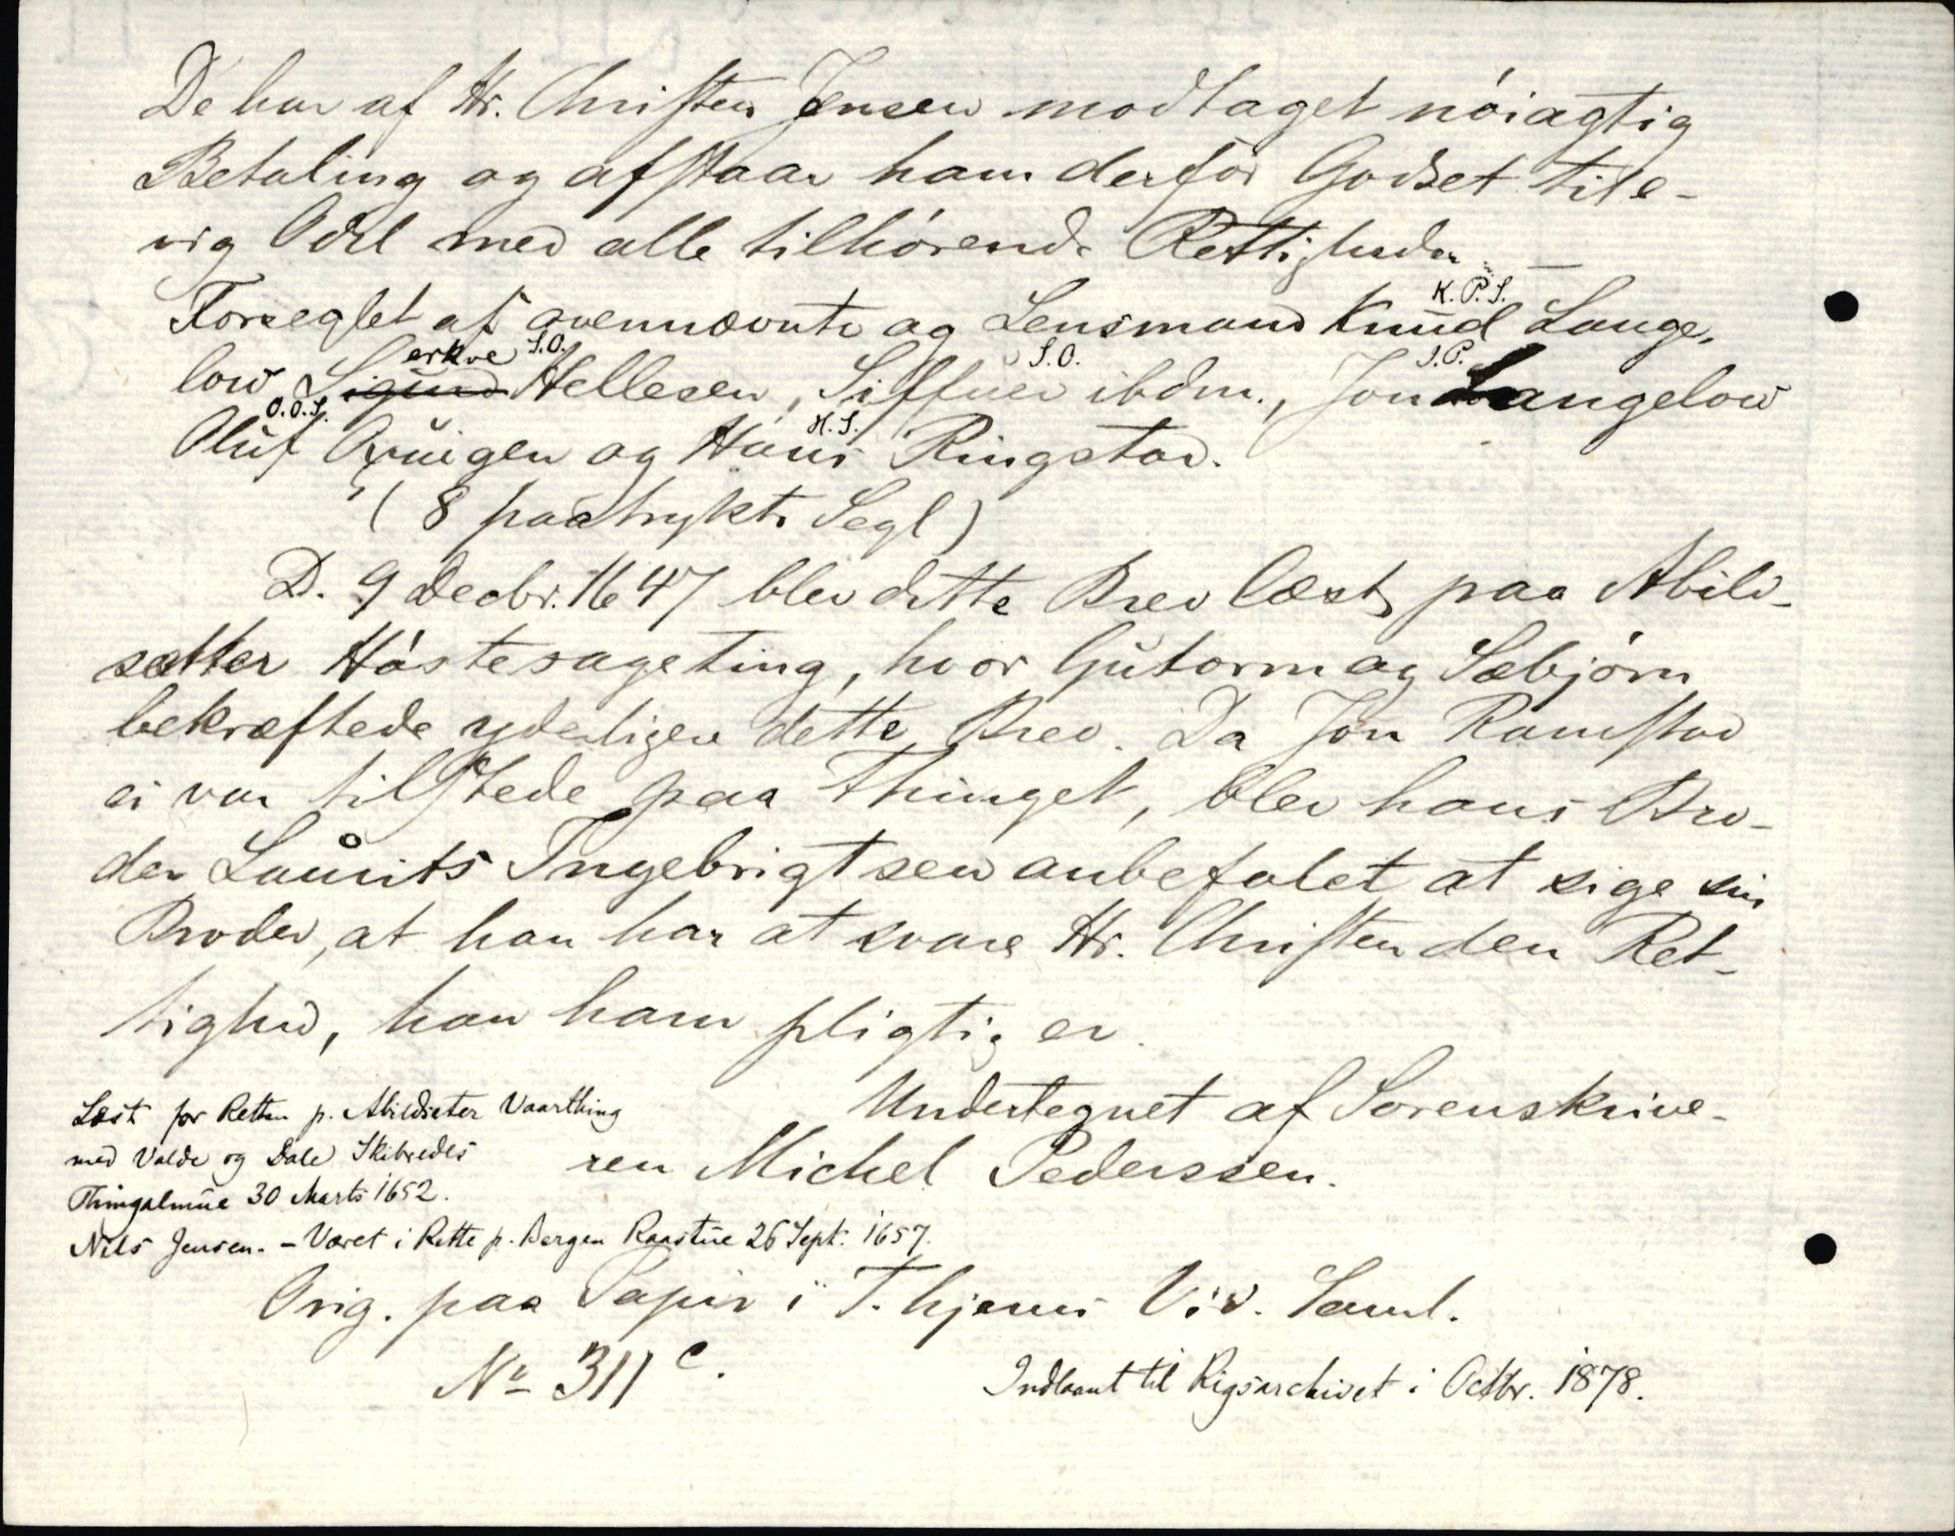 De har af Hr. Christen Jensen modtaget nöiagtig
Betaling og afstaar ham derfor Godset til e-
vig Odel med alle tilhörende Rettigheder. —
K. P. S.
Forseglet af ovennævnte og Lensmand Knud Lange,
erkve S.O. S.O. J.P.
low Sigurd Hellesen, Siffuer ibdm., Jon Langelow
O.O.S. H.S.
Oluf og Hans Ringstad.
( 8 paatrykte Segl )
D. 9 Decbr. 1647 blev dette Brev læst paa Abild-
setter Höstesageting, hvor Gutorm og Sæbjörn
bekræftede yderligere dette Brev. Da Jon Ramstad
ei var tilstede paa Thinget, blev hans Bro-
der Laurits Ingebrigtsen anbefalet at sige sin
Broder, at han har at svare Hr. Christen den Ret-
tighed, han ham pligtig er.
Undertegnet af Sorenskrive-
ren Michel Pederssen.
Læst for Retten p. Abildseter Vaarthing
med Valde og Dale Skibredes
Thingalmue 30 Marts 1652.
Nils Jensen. – Været i Rette p. Bergen Raastue 26 Sept. 1657.
Orig. paa Papir i T.hjems Vid. Saml.
No 311 c.
Indlaant til Rigsarchivet i Octbr. 1878.